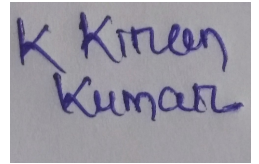 K Kiran
Kumar